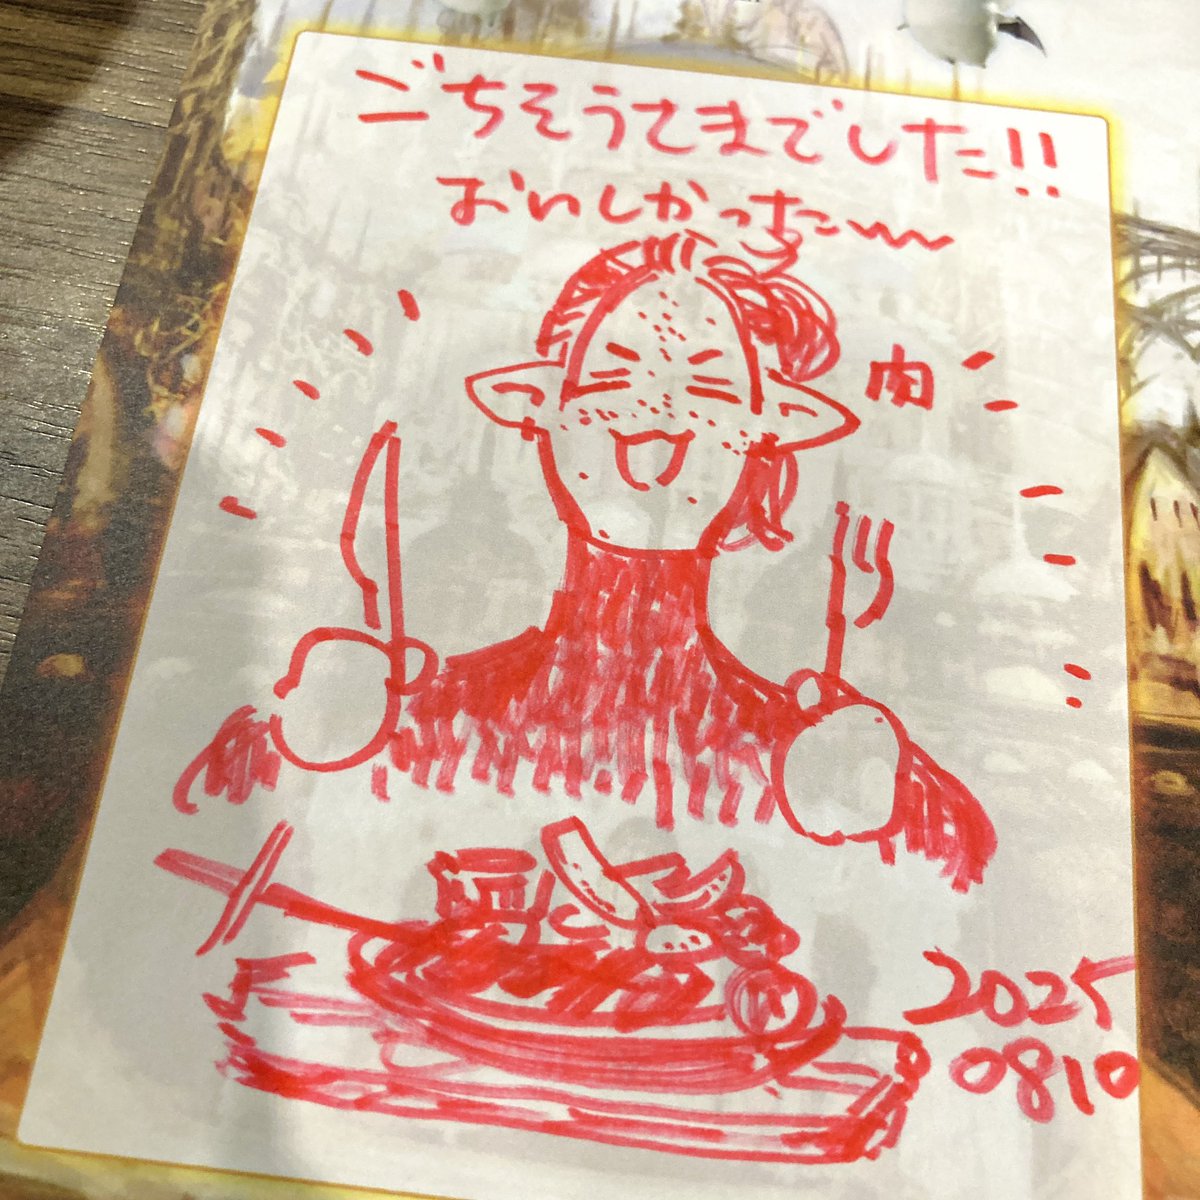 ごちそうさまでした!!
おいしかった〜
肉
2025
0810